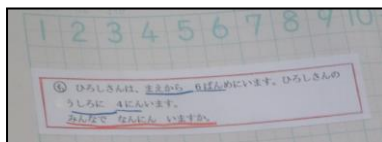 1 2 3 4 5 6 7 8 9 10
⑥ ひろしさんは、まえから 6ばんめにいます。ひろしさんの
うしろに 4にんいます。
みんなで なんにん いますか。